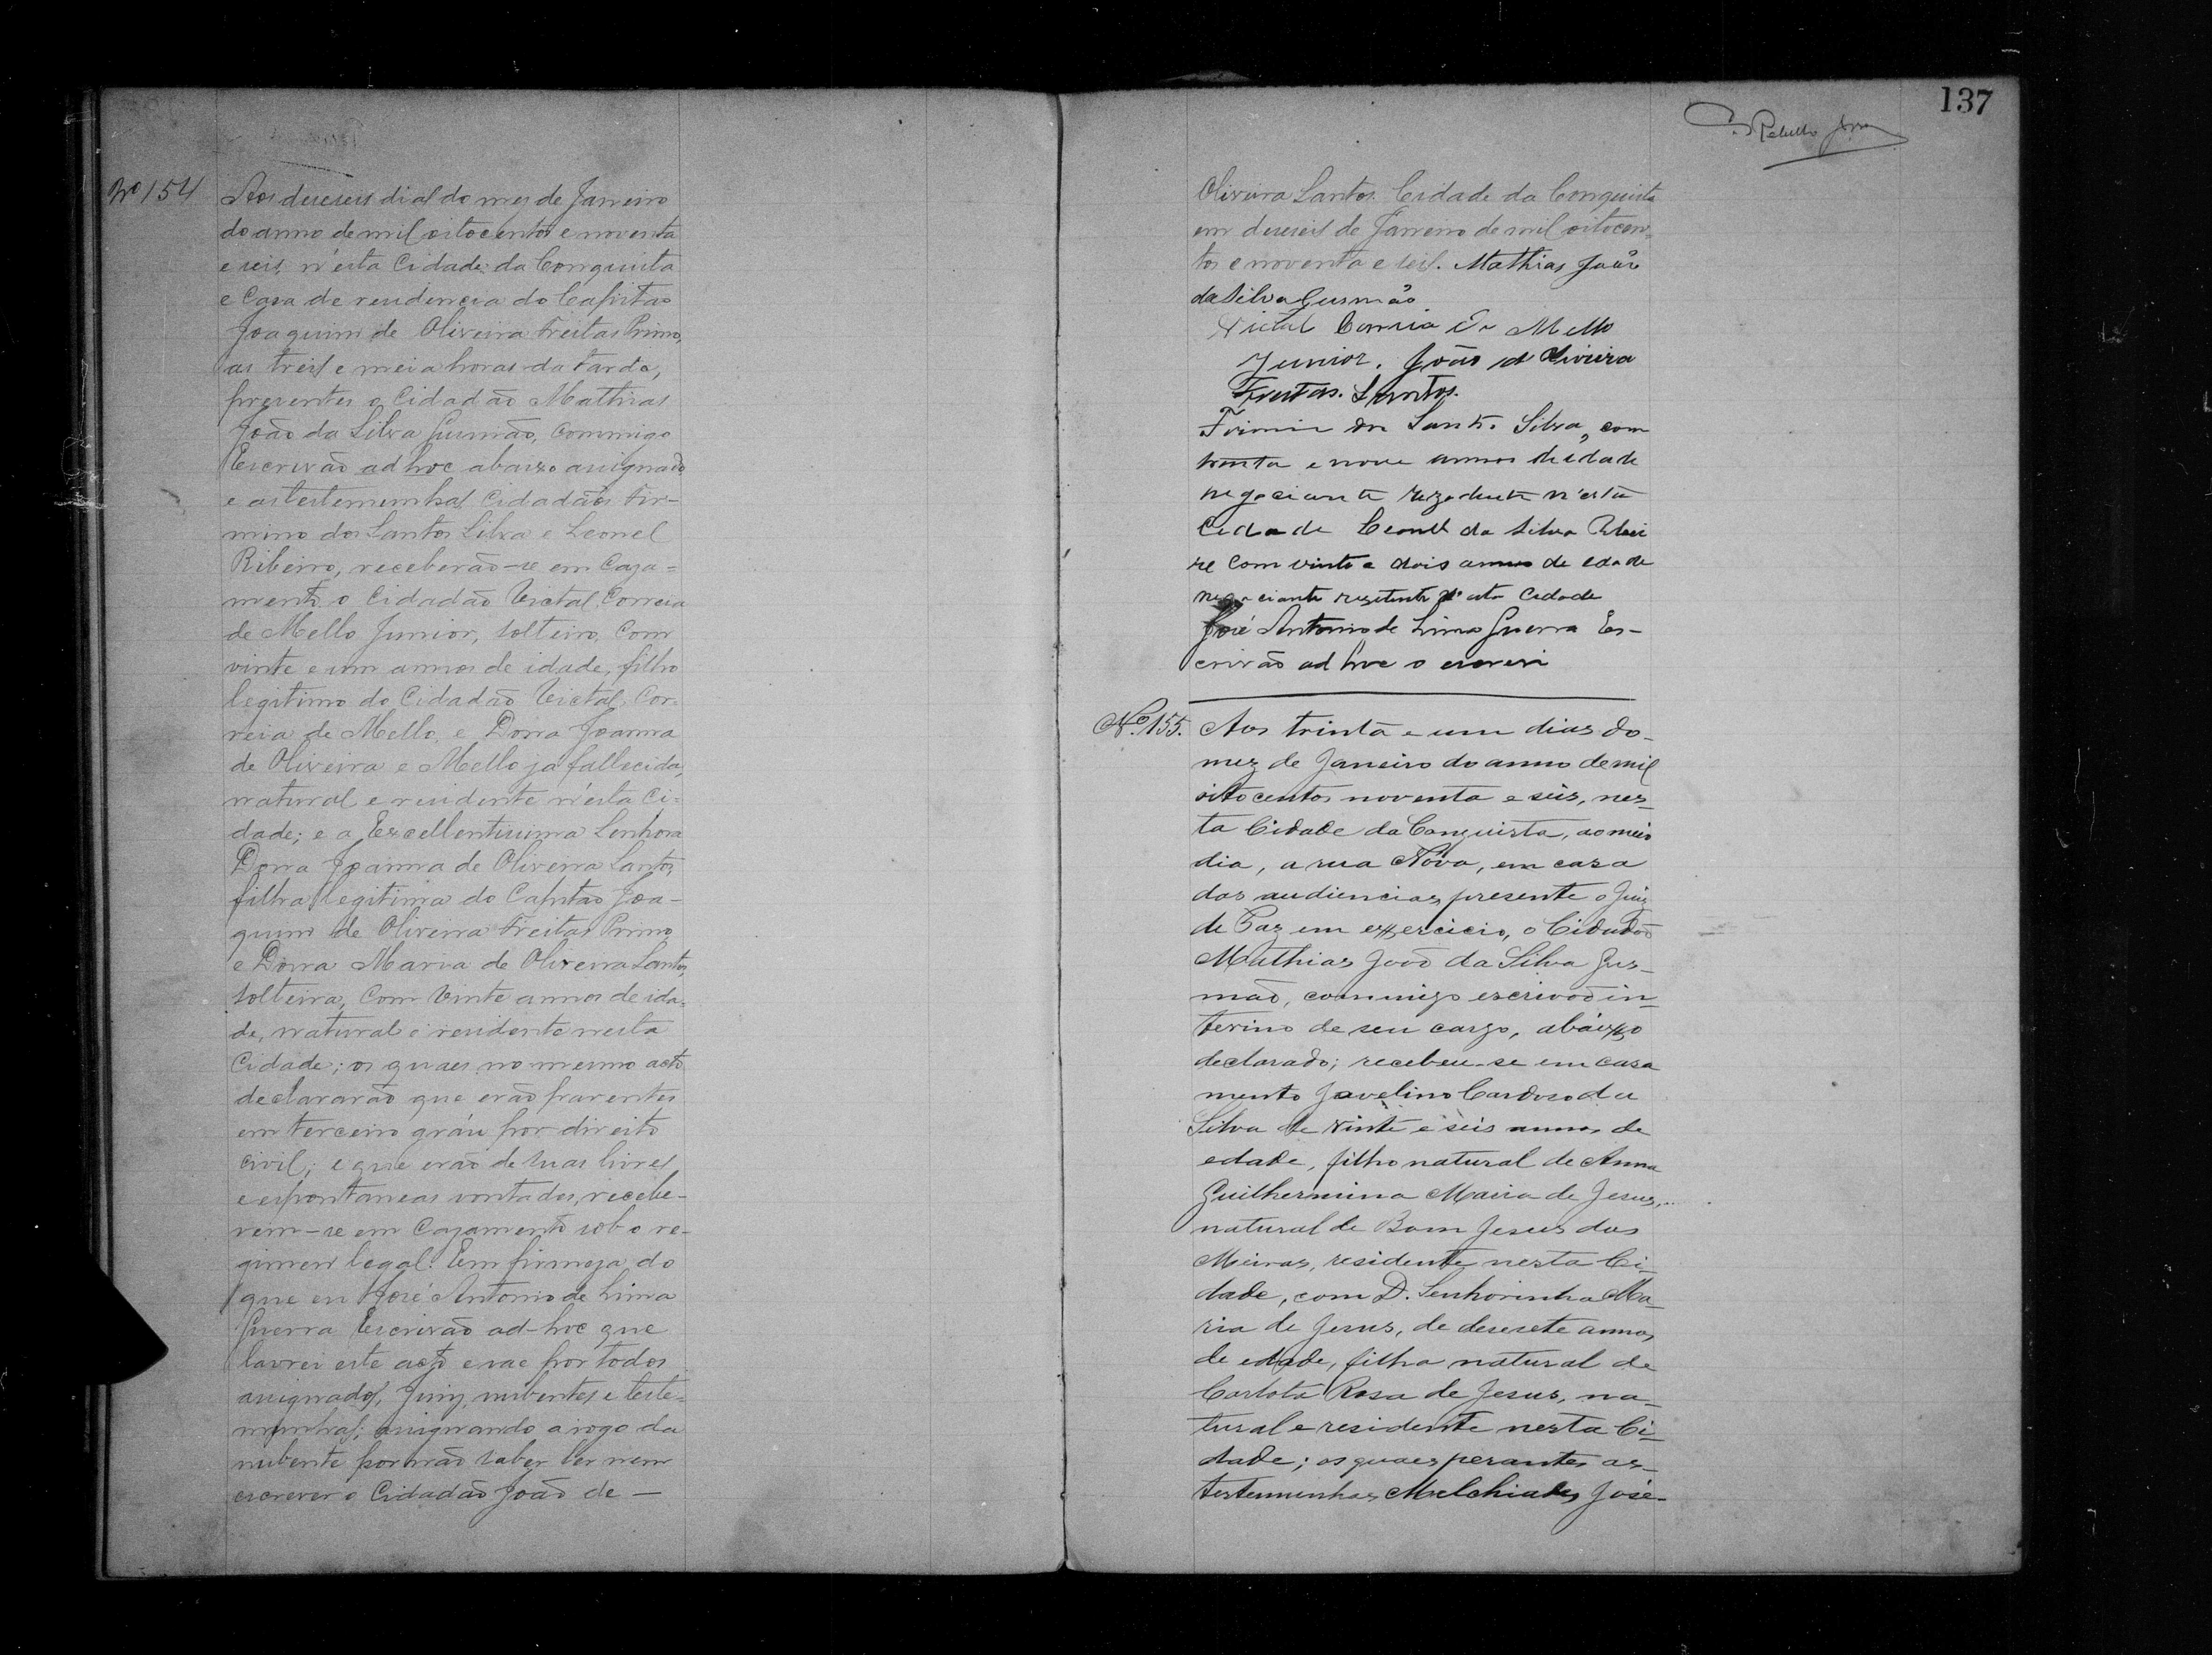 Nº 154
Aos deseseis dias do mes de Janeiro
do anno de mil oitocentos e noventa
e seis, n'esta Cidade da Conquista
e Casa de residencia do Capitao
Joaquim de Oliveira Freitas Primo,
as treis e meia horas da tarde,
presentes o Cidadão Mathias
João da Silva Gusmão, Commigo
Escrivão ad hoc abaixo assignado
e as testemunhas Cidadãos Fir-
mino dos Santos Silva e Leonel
Ribeiro, receberão-se em Caza-
mento o Cidadão Victal Correia
de Mello Junior, solteiro, Com
vinte e um annos de idade, filho
legitimo do Cidadão Victal Cor-
reia de Mello, e Dona Joanna
de Oliveira e Mello ja fallecida,
natural e residente n'esta Ci-
dade; e a Excellentissima Senhora
Dona Joanna de Oliveira Santos,
filha legitima do Capitao Joa-
quim de Oliveira Freitas Primo
e Dona Maria de Oliveira Santos,
solteira, Com vinte annos de ida-
de, natural e residente nesta
Cidade; os quaes no mesmo acto
declararão que erão parentes
em terceiro gráu por direito
civil; e que erão de suas livres
e espontaneas vontades, recebe-
rem-se em Cazamento sob o re-
gimen legal. Em firmeza do
que eu José Antonio de Lima
Guerra Escrivão ad-hoc que
lavrei este acto e vae por todos
assignados, Juiz, nubentes e teste-
munhas; assignando a rogo da
nubente por não saber ler nem
escrever o Cidadão João de —
137
Oliveira Santos. Cidade da Conquista
em deseseis de Janeiro de mil oitocen-
tos e noventa e seis. Mathias João
da Silva Gusmão
Victal Correia de Mello
Junior. João de Oliveira
Freitas. Santos.
Firmino dos Santos Silva, com
trinta e nove annos de idade
negociante rezedente n'esta
Cidade Leonel da Silva Ribei
ro Com vinte e dois annos de edade
negociante rezidente n'esta Cidade
José Antonio de Lima Guerra Es-
crivão ad hoc o escrevi
Nº 155. Aos trinta e um dias do
mez de Janeiro do anno de mil
oitocentos noventa e seis, nes-
ta Cidade da Conquista, ao meio
dia, a rua Nova, em casa
das audiencias, presente o Juiz
de Paz em exercicio, o Cidadão
Mathias João da Silva Gus-
mão, commigo escrivão in-
terino de seu cargo, abaixo
declarado; recebeu-se em casa
mento Jovelino Cardoso da
Silva de vinte e seis annos de
edade, filho natural de Anna
Guilhermina Maria de Jesus,
natural de Bom Jesus dos
Meiras, residente nesta Ci-
dade, com D. Senhorinha Ma-
ria de Jesus, de desesete annos
de edade, filha natural de
Carlota Rosa de Jesus, na-
tural e residente nesta Ci-
dade; os quaes perantes as
testemunhas Melchiades José